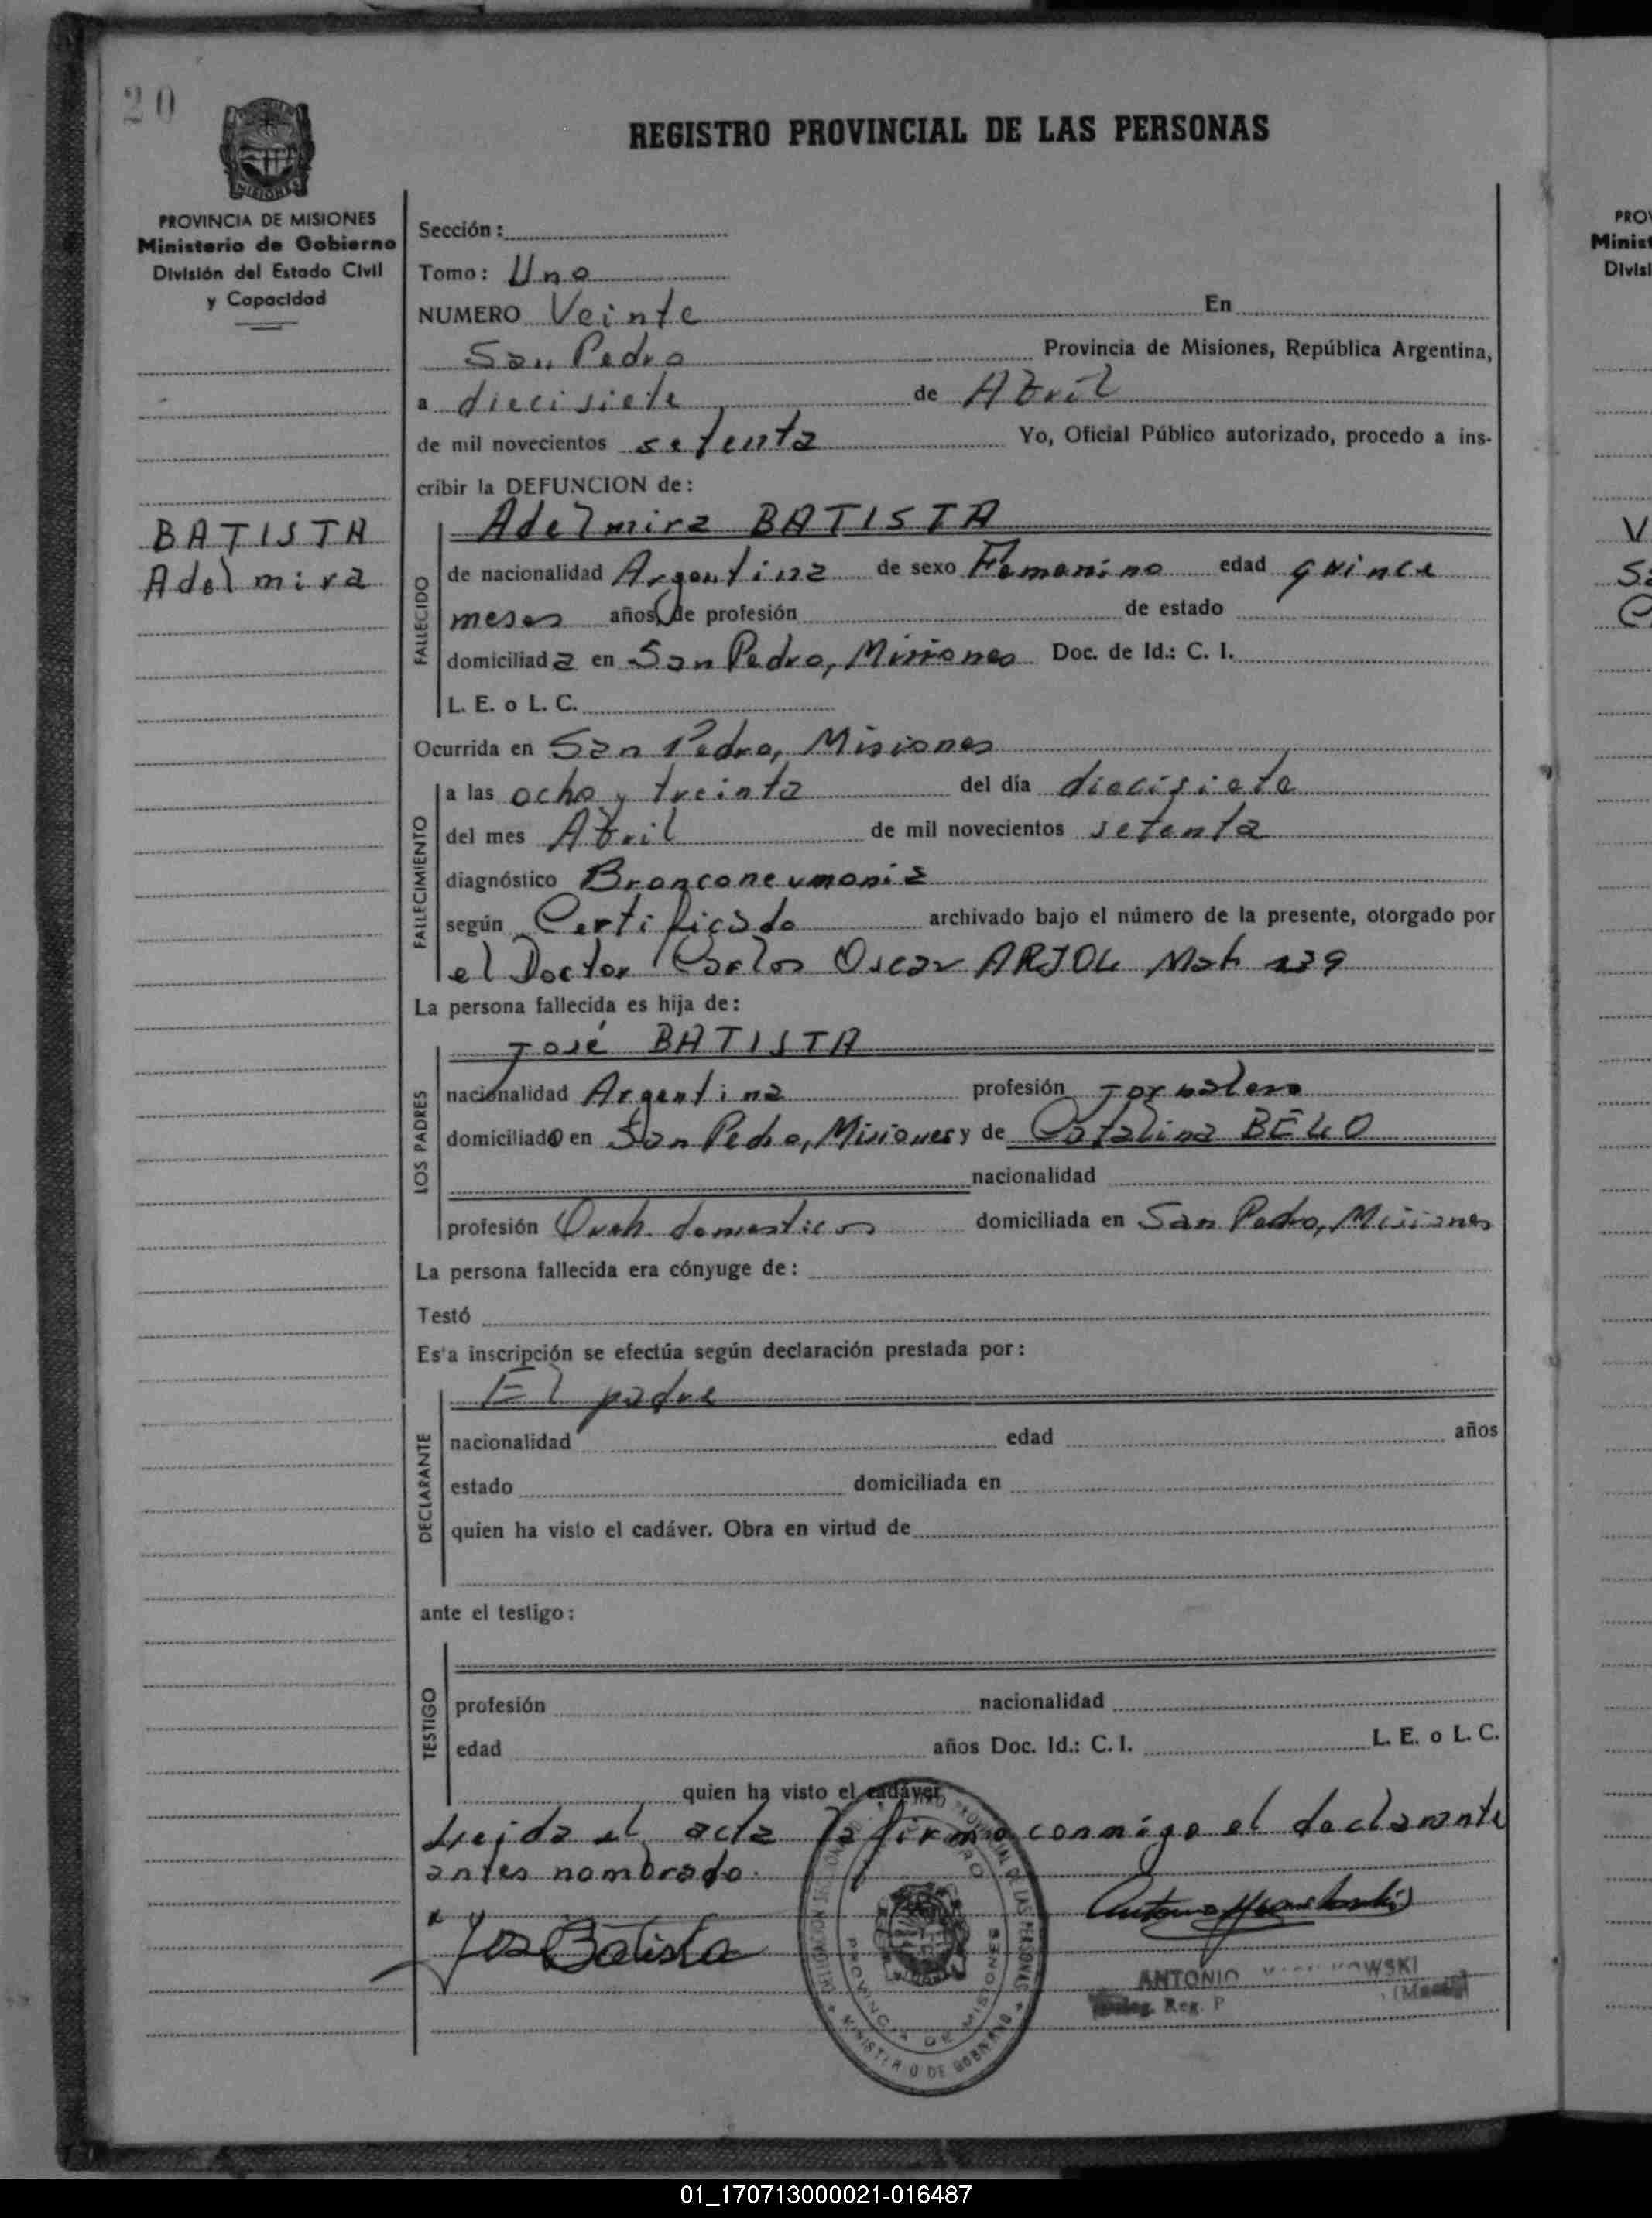 20
REGISTRO PROVINCIAL DE LAS PERSONAS
MISIONES
PROVINCIA DE MISIONES
Ministerio de Gobierno
División del Estado Civil
y Capacidad
BATISTA
Adelmira
Sección:
Tomo: Uno
NUMERO Veinte En
San Pedro Provincia de Misiones, República Argentina,
a diecisiete de Abril
de mil novecientos setenta Yo, Oficial Público autorizado, procedo a ins-
cribir la DEFUNCION de:
FALLECIDO
Adelmira BATISTA
de nacionalidad Argentina de sexo Femenino edad quince
meses años de profesión de estado
domiciliada en San Pedro, Misiones Doc. de Id.: C. I.
L. E. o L. C.
Ocurrida en San Pedro, Misiones
FALLECIMIENTO
a las ocho y treinta del día diecisiete
del mes Abril de mil novecientos setenta
diagnóstico Bronconeumonia
según Certificado archivado bajo el número de la presente, otorgado por
el Doctor Carlos Oscar Mat 139
La persona fallecida es hija de:
LOS PADRES
José BATISTA
nacionalidad Argentina profesión Jornalero
domiciliado en San Pedro, Misiones y de Catalina BELLO
nacionalidad
profesión Queh. domesticos domiciliada en San Pedro, Misiones
La persona fallecida era cónyuge de:
Testó
Esta inscripción se efectúa según declaración prestada por:
DECLARANTE
El padre
nacionalidad edad años
estado domiciliada en
quien ha visto el cadáver. Obra en virtud de
ante el testigo:
TESTIGO
profesión nacionalidad
edad años Doc. Id.: C. I. L. E. o L. C.
quien ha visto el cadáver
Leida el acta la firma conmigo el declarante
antes nombrado.
Jose Batista
PROVINCIA DE MISIONES
MINISTERIO DE GOBIERNO
ANTONIO
Deleg. Reg. P
01_170713000021-016487
PROV
Minist
Divisi